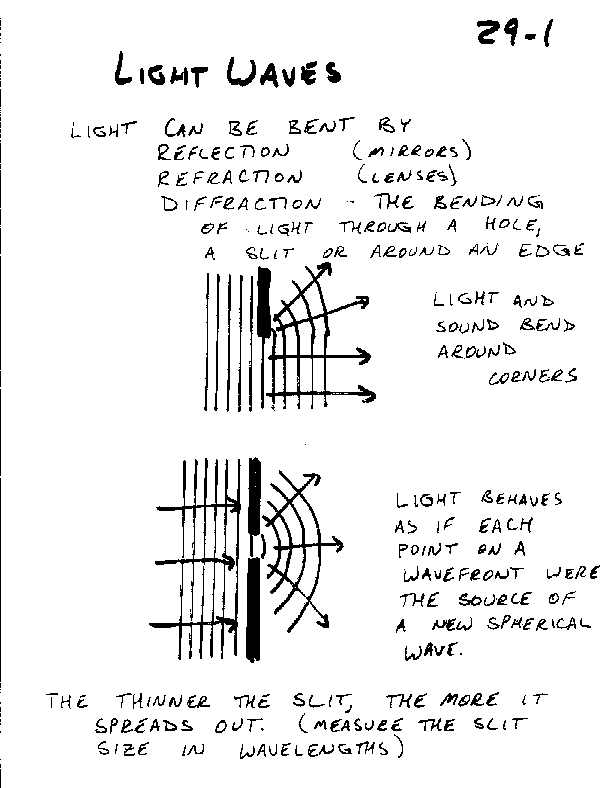 29-1
LIGHT WAVES
LIGHT CAN BE BENT BY
REFLECTION (MIRRORS)
REFRACTION (LENSES)
DIFFRACTION - THE BENDING
OF LIGHT THROUGH A HOLE,
A SLIT OR AROUND AN EDGE
LIGHT AND
SOUND BEND
AROUND
CORNERS
LIGHT BEHAVES
AS IF EACH
POINT ON A
WAVEFRONT WERE
THE SOURCE OF
A NEW SPHERICAL
WAVE.
THE THINNER THE SLIT, THE MORE IT
SPREADS OUT. (MEASURE THE SLIT
SIZE IN WAVELENGTHS)